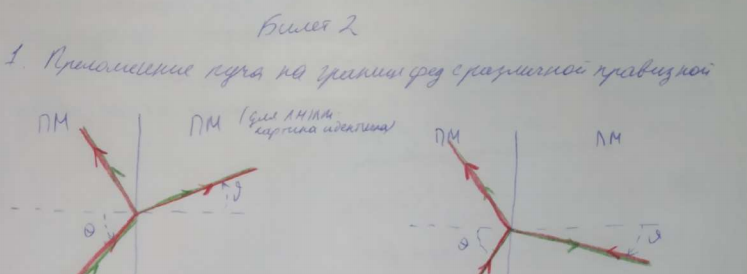 Билет 2
1. Преломление луча на границе сред с различной правизной
ПМ ПМ (для ЛМ/ЛМ картина идентична)
ПМ ЛМ
θ ϑ
θ ϑ